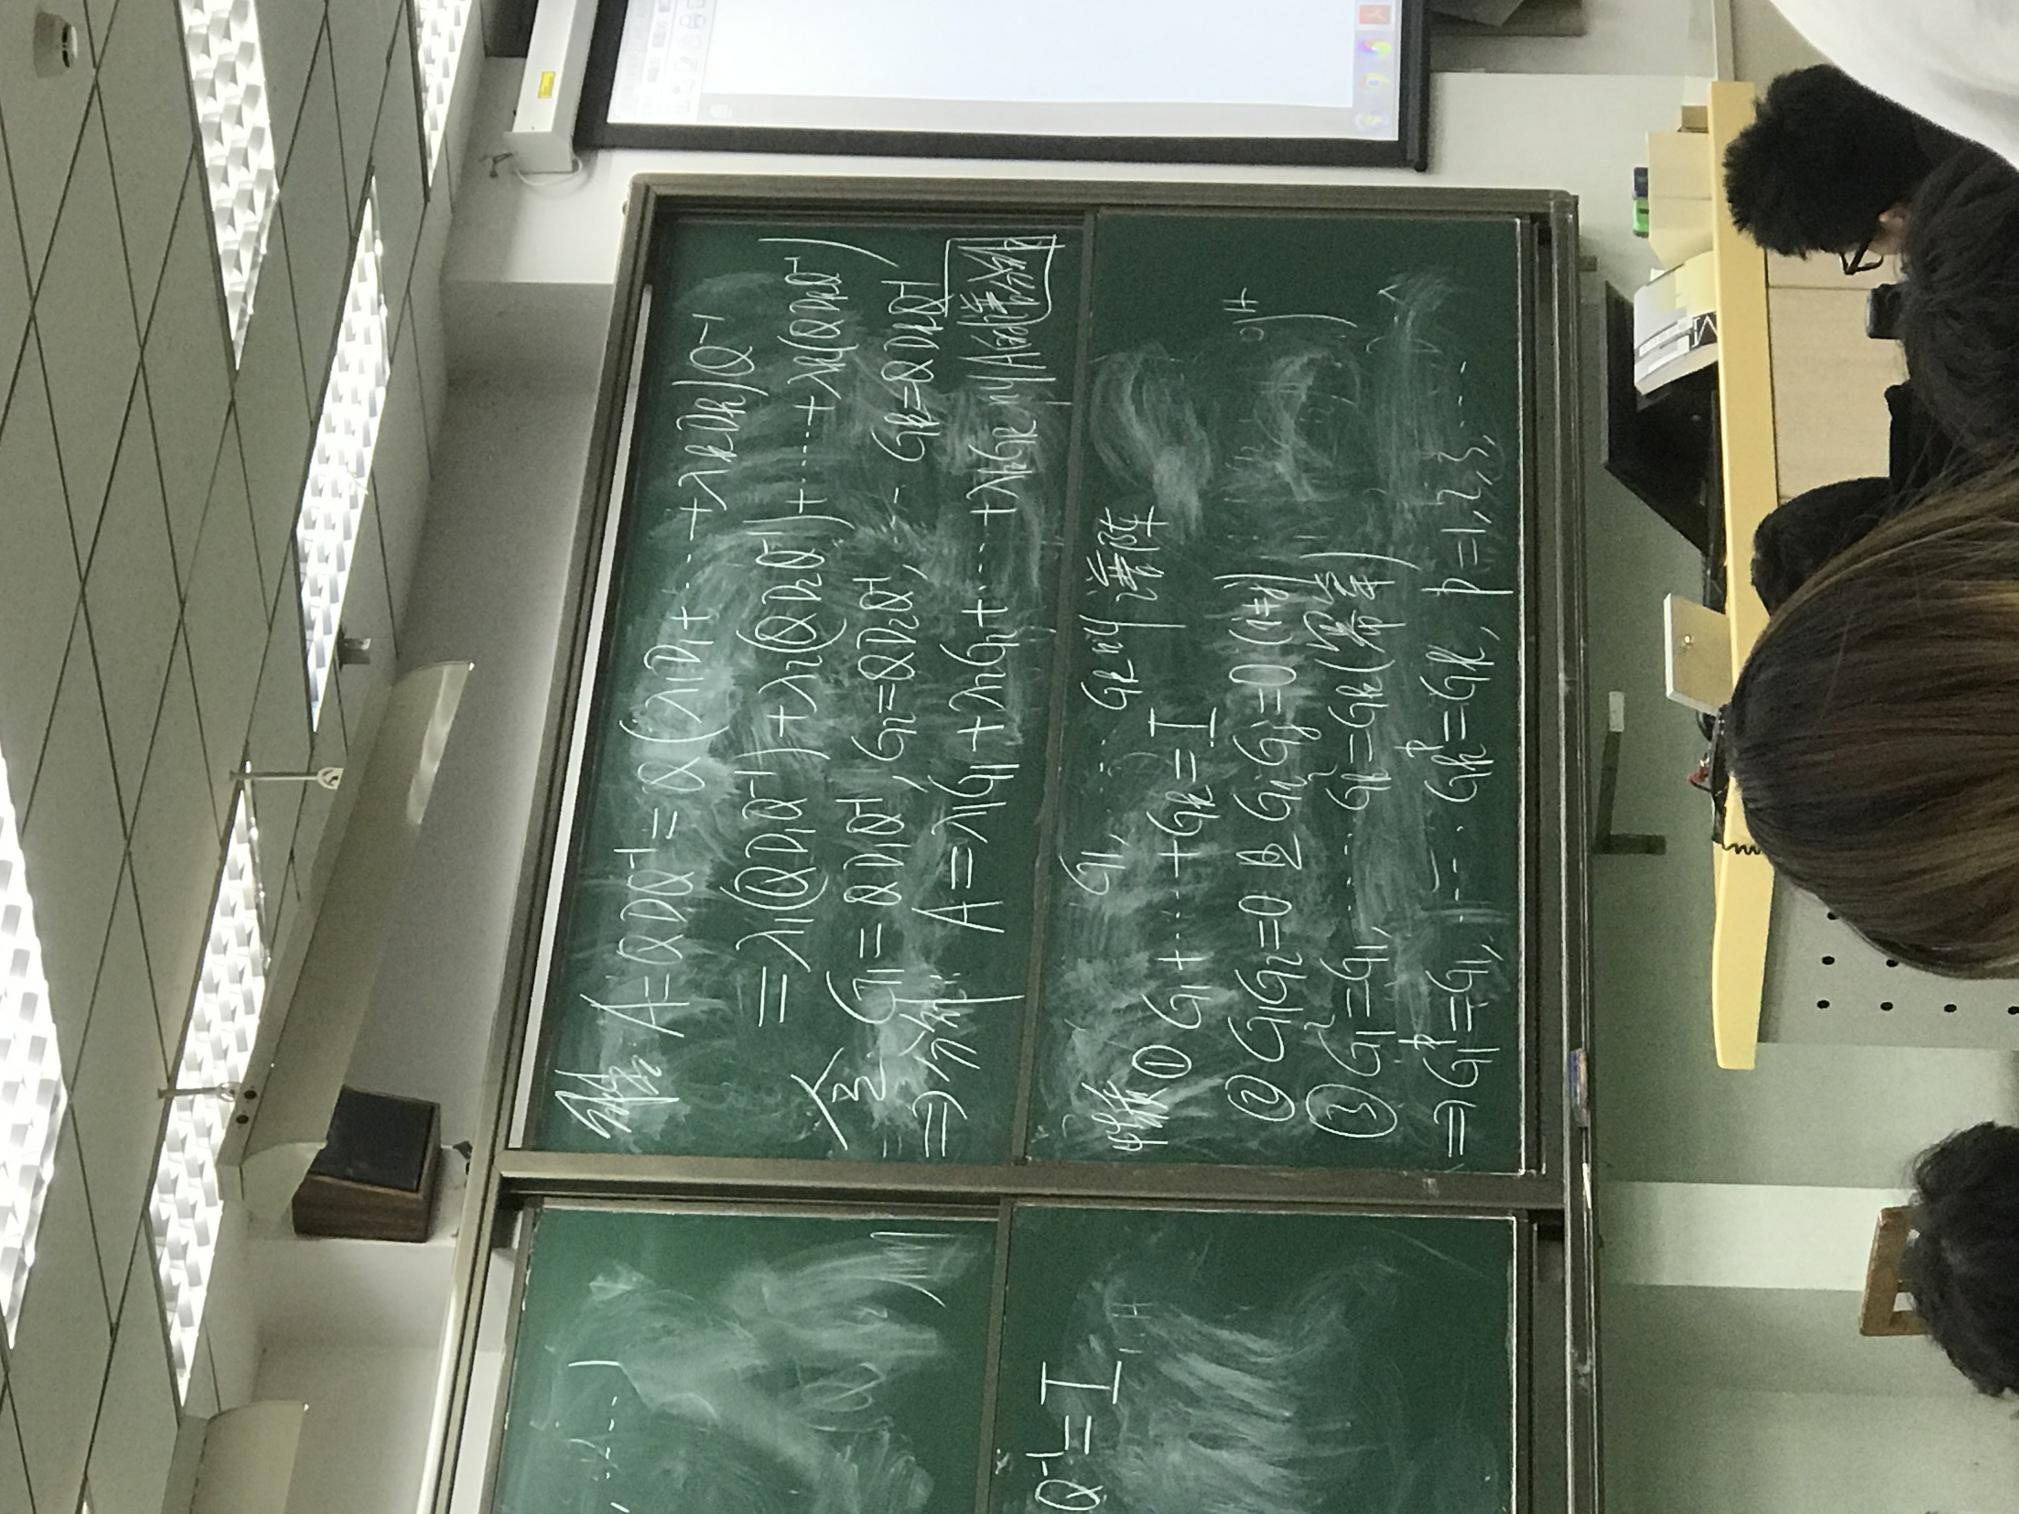 A=QDQ⁻¹=Q(λ₁D₁+⋯+λₖDₖ)Q⁻¹
=λ₁(QD₁Q⁻¹)+λ₂(QD₂Q⁻¹)+⋯+λₖ(QDₖQ⁻¹)
令 G₁=QD₁Q⁻¹, G₂=QD₂Q⁻¹, ⋯ Gₖ=QDₖQ⁻¹
⇒分解: A=λ₁G₁+λ₂G₂+⋯+λₖGₖ 叫A的谱分解
G₁, ⋯ Gₖ 叫谱阵
① G₁+⋯+Gₖ=I
② G₁G₂=0 且 GᵢGⱼ=0(i≠j)
③ G₁²=G₁, ⋯ Gₖ²=Gₖ(幂等)
⇒G₁ᵖ=G₁, ⋯ Gₖᵖ=Gₖ, p=1,2,3,⋯
Q⁻¹=I